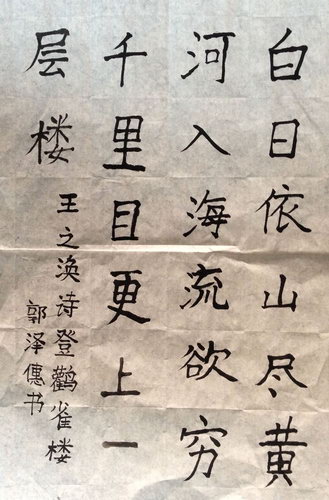 白日依山尽黄
河入海流欲穷
千里目更上一
层楼
王之涣诗登鹳雀楼
郭泽傳书